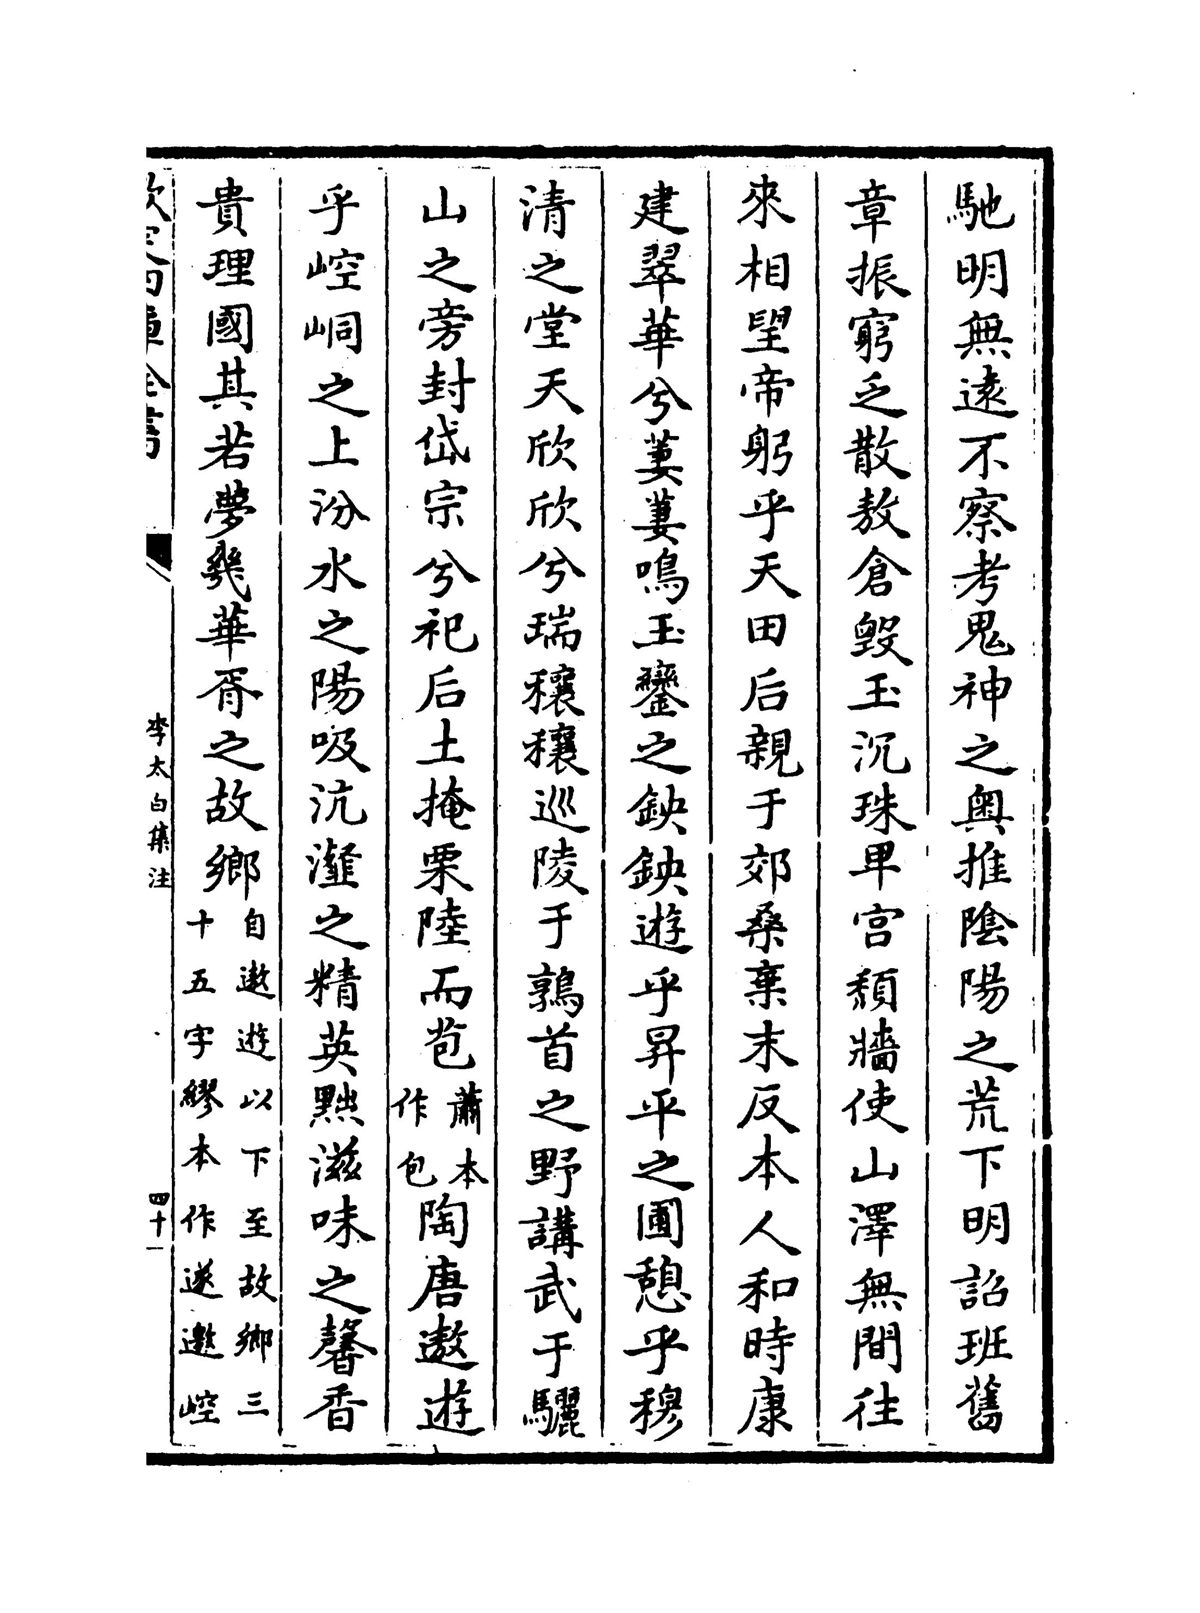 馳明無遠不察考鬼神之奧推陰陽之荒下明詔班舊
章振窮乏散敖倉毀玉沉珠卑宫頽牆使山澤無間往
來相望帝躬乎天田后親于郊桑棄末反本人和時康
建翠華兮萋萋鳴玉鑾之鉠鉠遊乎昇平之圃憩乎穆
清之堂天欣欣兮瑞穰穰巡陵于鶉首之野講武于驪
山之旁封岱宗兮祀后土掩栗陸而苞蕭本作包陶唐遨遊
乎崆峒之上汾水之陽吸沆瀣之精英黜滋味之馨香
貴理國其若夢幾華胥之故鄉自遨遊以下至故鄉三十五字繆本作遂邀崆
欽定四庫全書
李太白集注
四十一